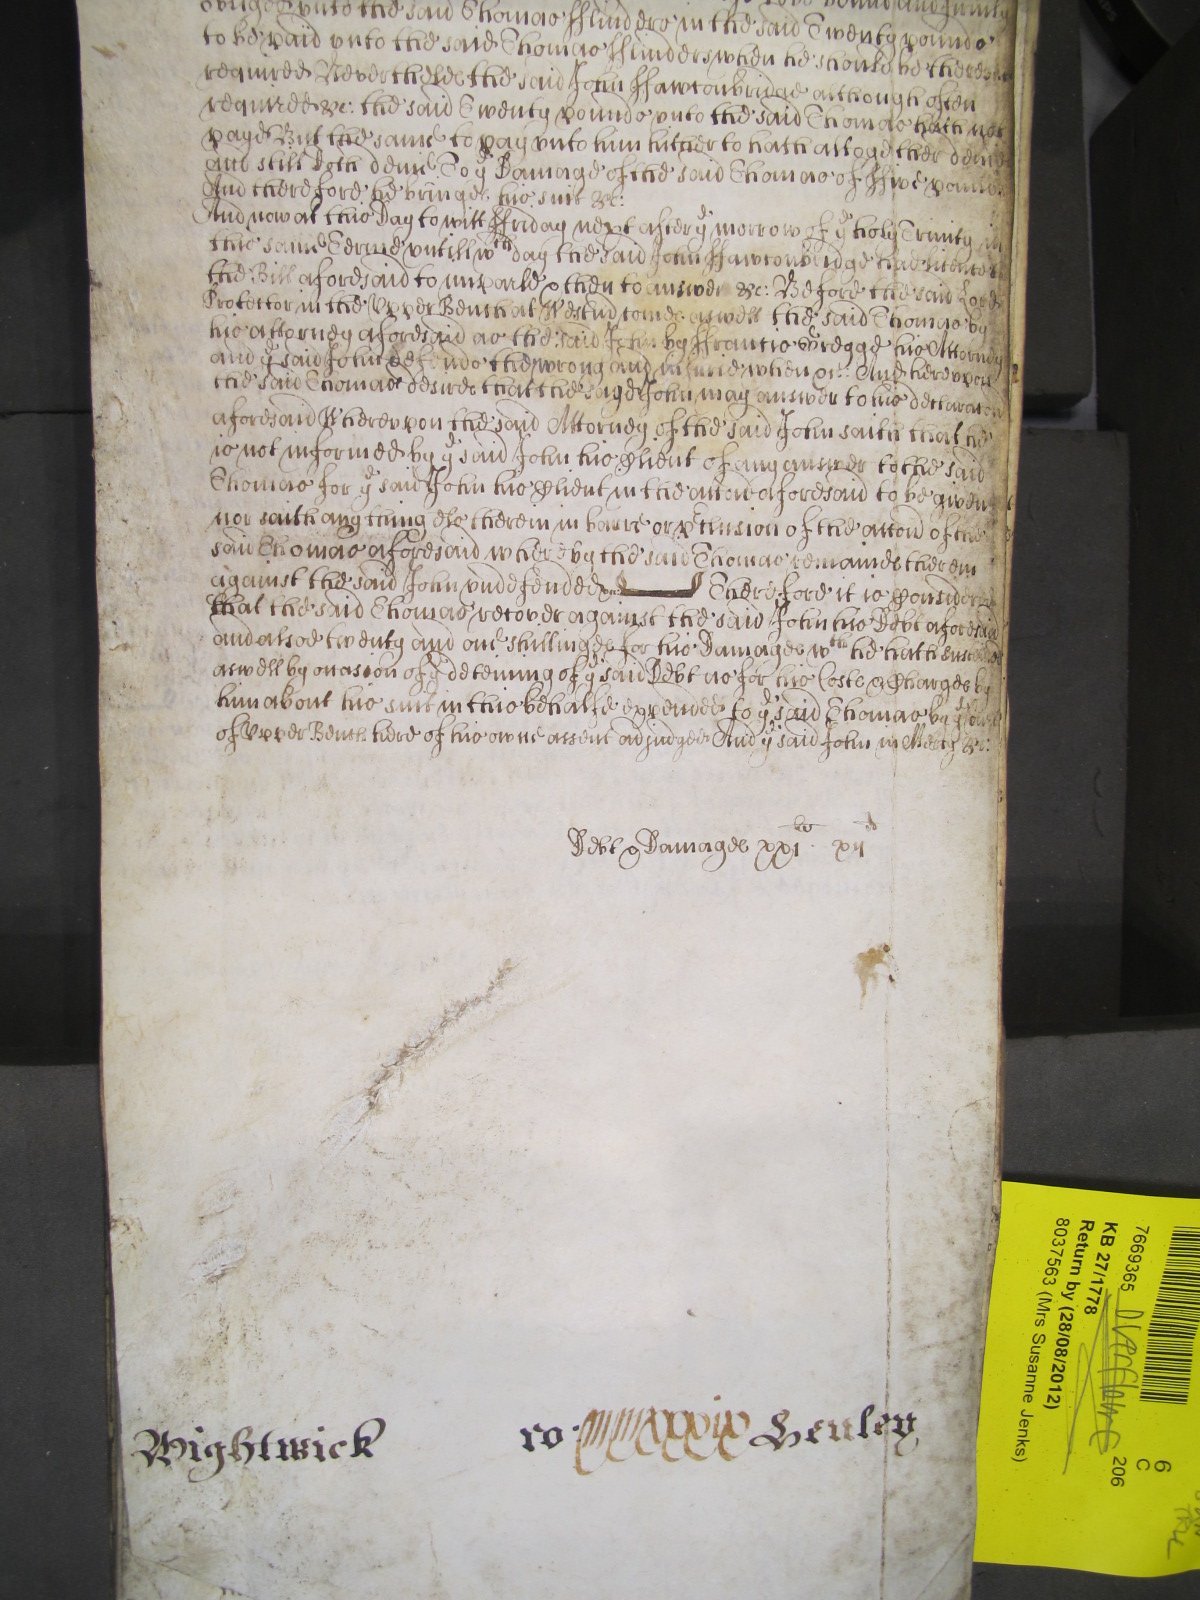 unto the said Thomas Fflinders in the said Twenty pounds
to be paid unto the said Thomas Fflinders when he should be thereunto
required Neverthelesse the said John Ffawconbridge although often
required &c: the said Twenty pounds unto the said Thomas hath not
payd But the same to pay unto him hitherto hath altogether denied
and still doth deny To ye Damage of the said Thomas of Ffive pounds
And therefore he bringes his suit &c:
And now at this Day to witt Ffriday next after ye morrow of ye holy Trinity in
this same Terme untill wch day the said John Ffawconbridge had licence to
the Bill aforesaid to imparle & then to answer &c: Before the said Lord
Protector in the Upper Bench at Westmr comes aswell the said Thomas by
his attorney aforesaid as the said John by Ffrancis Gregge his Attorney
and ye said John defends the wrong and injurie when &c: And hereupon
the said Thomas desires that the sayd John may answer to his declaracon
aforesaid Whereupon the said Attorney of the said John saith that he
is not informed by ye said John his Client of any answer to the said
Thomas for ye said John his Client in the accon aforesaid to be given
nor saith any thing els therein in barre or preclusion of the accon of the
said Thomas aforesaid whereby the said Thomas remaines therein
against the said John undefended &c Therefore it is Considered
that the said Thomas recover against the said John his Debt aforesaid
and alsoe twenty and one shillinges for his Damages wch he hath susteined
aswell by occasion of ye deteining of ye said Debt as for his Costs & Charges by
him about his suit in this behalfe expended to ye said Thomas by ye Court
of Upper Bench here of his owne assent adjudged And ye said John in Mercy &c:
Debt & Damages xxi li xii d
Wightwick ro: mmxxxix Henley
7669365
KB 27/1778
Return by (28/08/2012)
8037563 (Mrs Susanne Jenks)
206
C
6